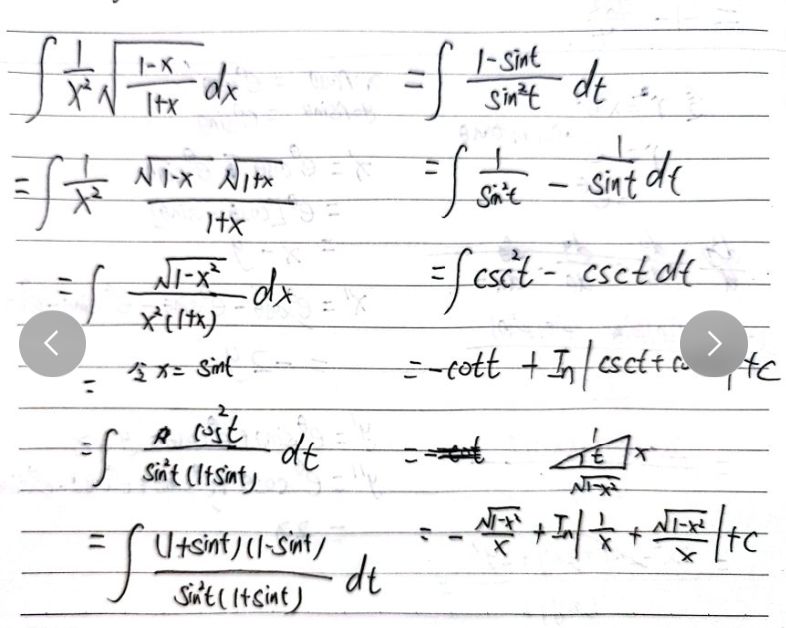 ∫ 1/x² √((1-x)/(1+x)) dx
= ∫ 1/x² (√(1-x) √(1+x))/(1+x)
= ∫ √(1-x²)/(x²(1+x)) dx
= 令 x = sint
= ∫ cos²t/(sin²t(1+sint)) dt
= ∫ ((1+sint)(1-sint))/(sin²t(1+sint)) dt
= ∫ (1-sint)/sin²t dt
= ∫ 1/sin²t - 1/sint dt
= ∫ csc²t - csct dt
= -cott + In|csct + +C
=
1 t x √(1-x²)
= - √(1-x²)/x + In|1/x + √(1-x²)/x| + C